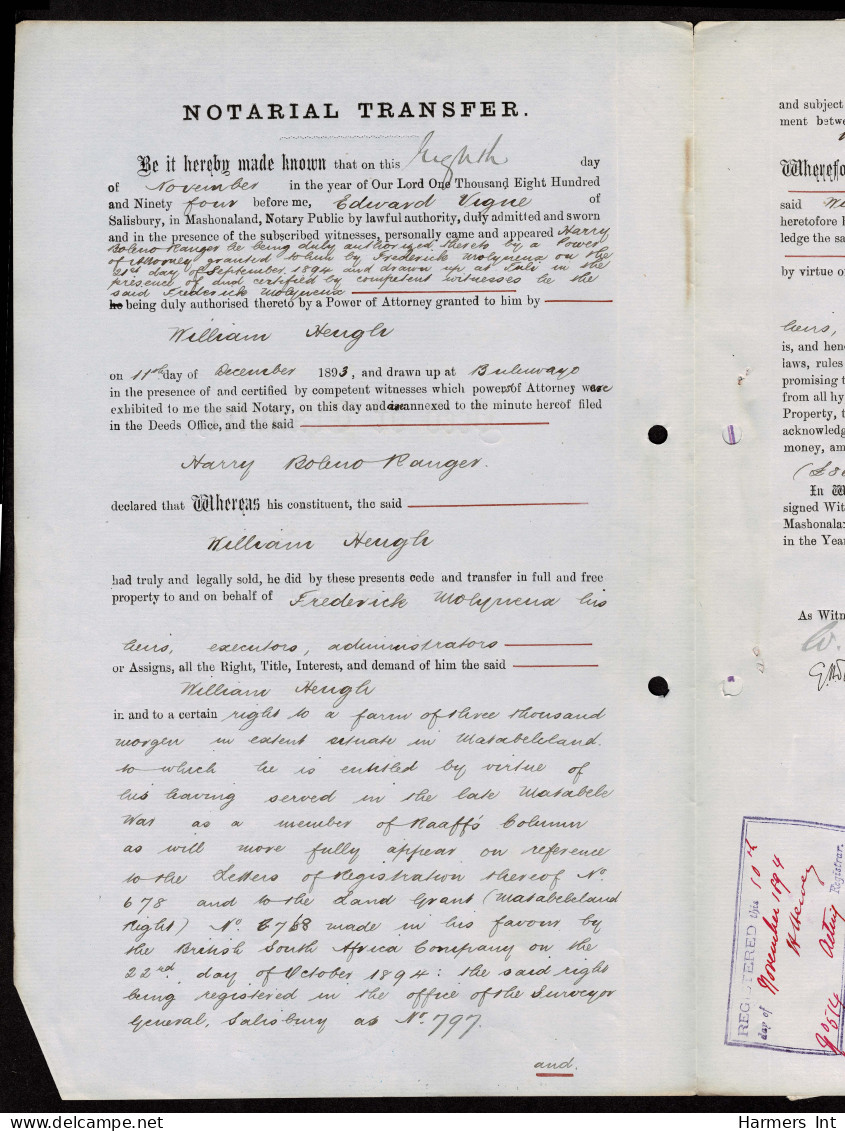 NOTARIAL TRANSFER.
Be it hereby made known that on this Eighth day
of November in the year of Our Lord One Thousand Eight Hundred
and Ninety four before me, Edward Vigne of
Salisbury, in Mashonaland, Notary Public by lawful authority, duly admitted and sworn
and in the presence of the subscribed witnesses, personally came and appeared Harry
Boleno Ranger he being duly authorized thereto by a Power
of Attorney granted to him by Frederick Molyneux on the
21st day of September 1894 and drawn up at Tuli in the
presence of and certified by competent witnesses he the
said Frederick Molyneux
he being duly authorised thereto by a Power of Attorney granted to him by
William Heugh
on 11th day of December 1893, and drawn up at Buluwayo
in the presence of and certified by competent witnesses which powers of Attorney were
exhibited to me the said Notary, on this day and are annexed to the minute hereof filed
in the Deeds Office, and the said
Harry Boleno Ranger.
declared that Whereas his constituent, the said
William Heugh
had truly and legally sold, he did by these presents cede and transfer in full and free
property to and on behalf of Frederick Molyneux his
heirs, executors, administrators
or Assigns, all the Right, Title, Interest, and demand of him the said
William Heugh
in and to a certain right to a farm of three thousand
morgen in extent situate in Matabeleland.
to which he is entitled by virtue of
his having served in the late Matabele
War as a member of Raaff's Column
as will more fully appear on reference
to the Letters of Registration thereof No.
678 and to the Land Grant (Matabeleland
Right) No. 6768 made in his favour by
the British South Africa Company on the
22nd day of October 1894: the said right
being registered in the office of the Surveyor
General, Salisbury as No. 797.
and.
and subject
ment betwe
Wherefo
said Wi
heretofore
ledge the sa
by virtue o
heirs,
is, and hen
laws, rules
promising t
from all hy
Property, t
acknowledg
money, am
In W
signed Wit
Mashonala
in the Year
As Witn
REGISTERED this 10th
day of November 1894
H Hervey
Acting Registrar.
Harmers Int